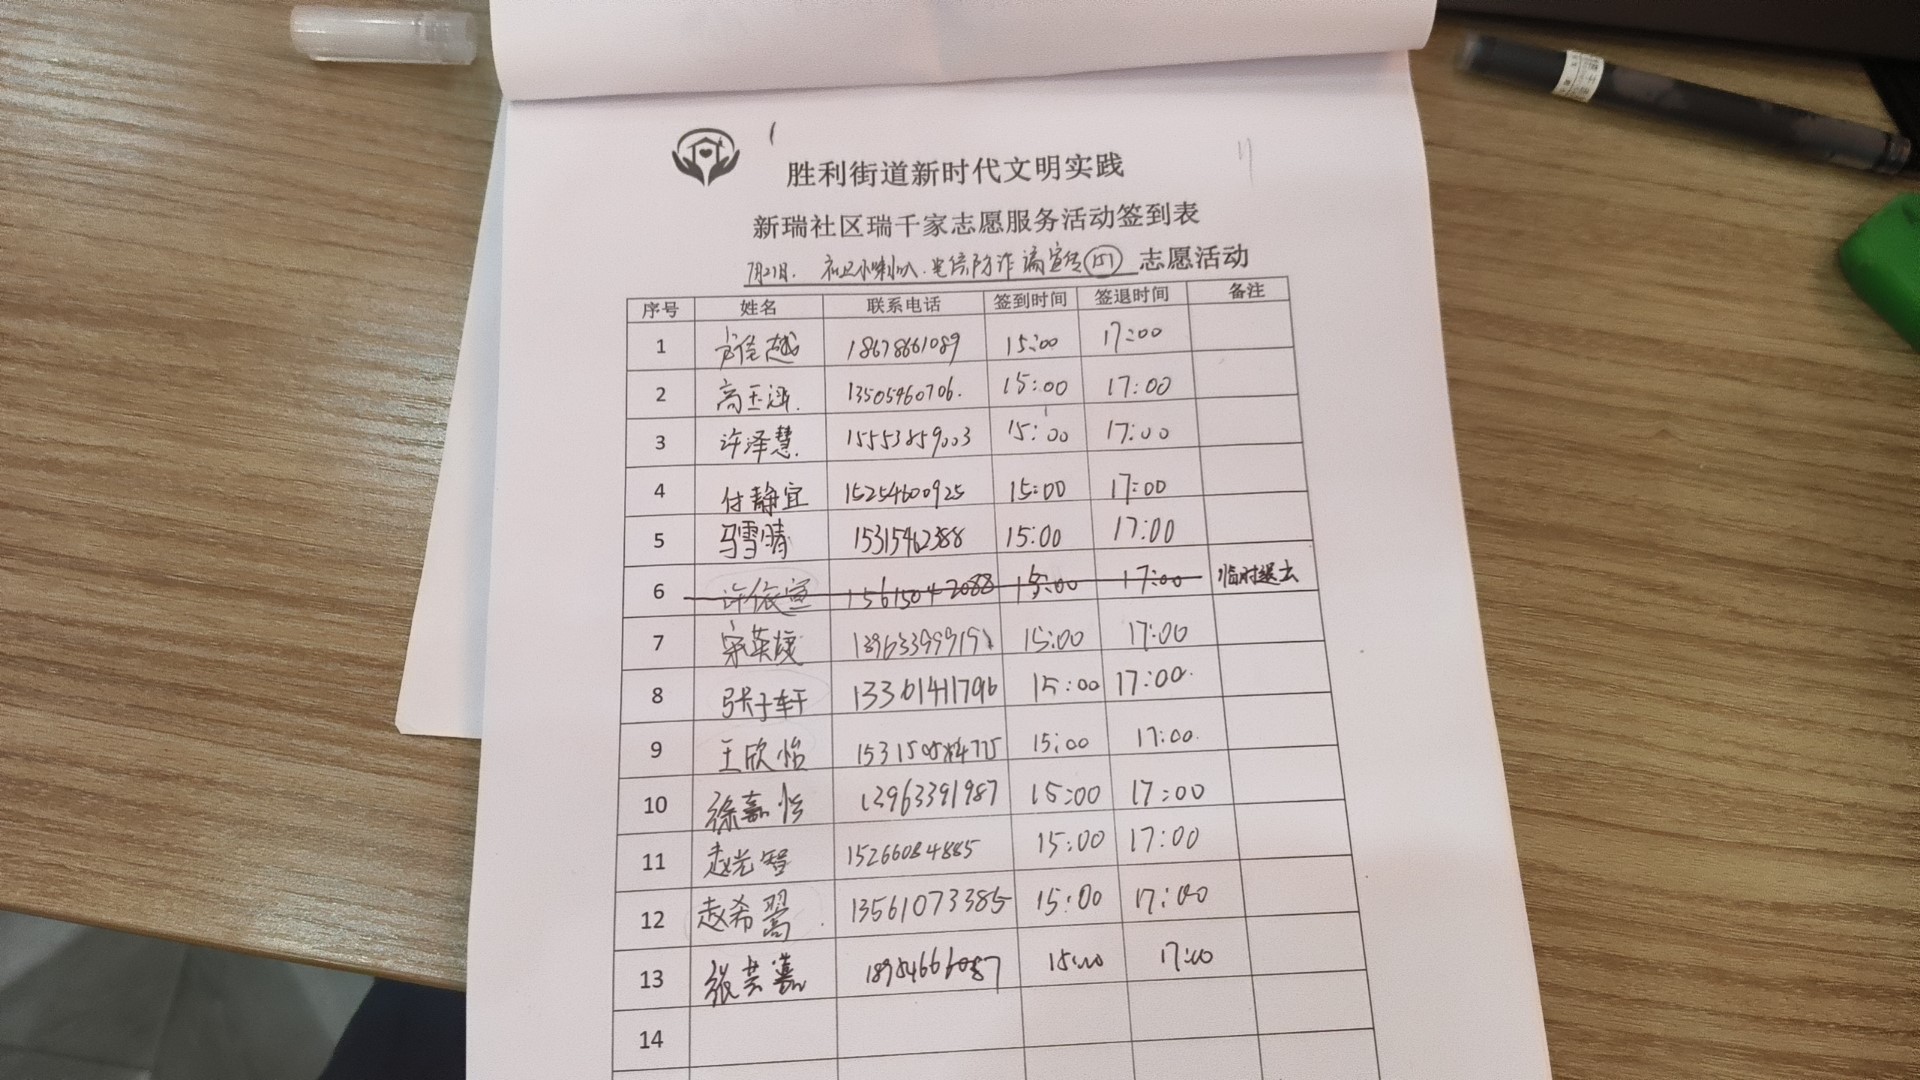 胜利街道新时代文明实践
新瑞社区瑞千家志愿服务活动签到表
7月27日. 社区小喇叭.电信防诈骗宣传(四) 志愿活动
序号 姓名 联系电话 签到时间 签退时间 备注
1 18678661089 15:00 17:00
2 高玉 13505460706. 15:00 17:00
3 许泽慧. 15553859003 15:00 17:00
4 付静宜 15254600925 15:00 17:00
5 马雪晴 15315462388 15:00 17:00
6 许依宣 15615042088 15:00 17:00 临时退去
7 宋英 15:00 17:00
8 张子轩 13361411796 15:00 17:00.
9 王欣怡 15:00 17:00.
10 徐嘉怡 13963391987 15:00 17:00
11 赵光智 15266084885 15:00 17:00
12 赵希翯. 13561073385 15:00 17:00
13 张艺嘉 18954666087 15:00 17:00
14